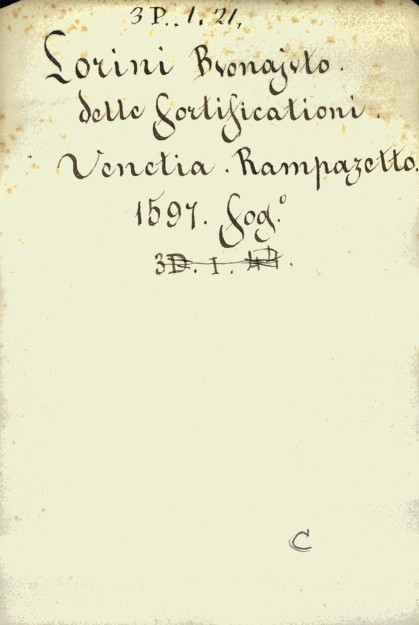 3 P..1.21,
Lorini Buonajuto.
delle Fortificationi.
Venetia. Rampazetto.
1597. Fog.º
3D. I.
C